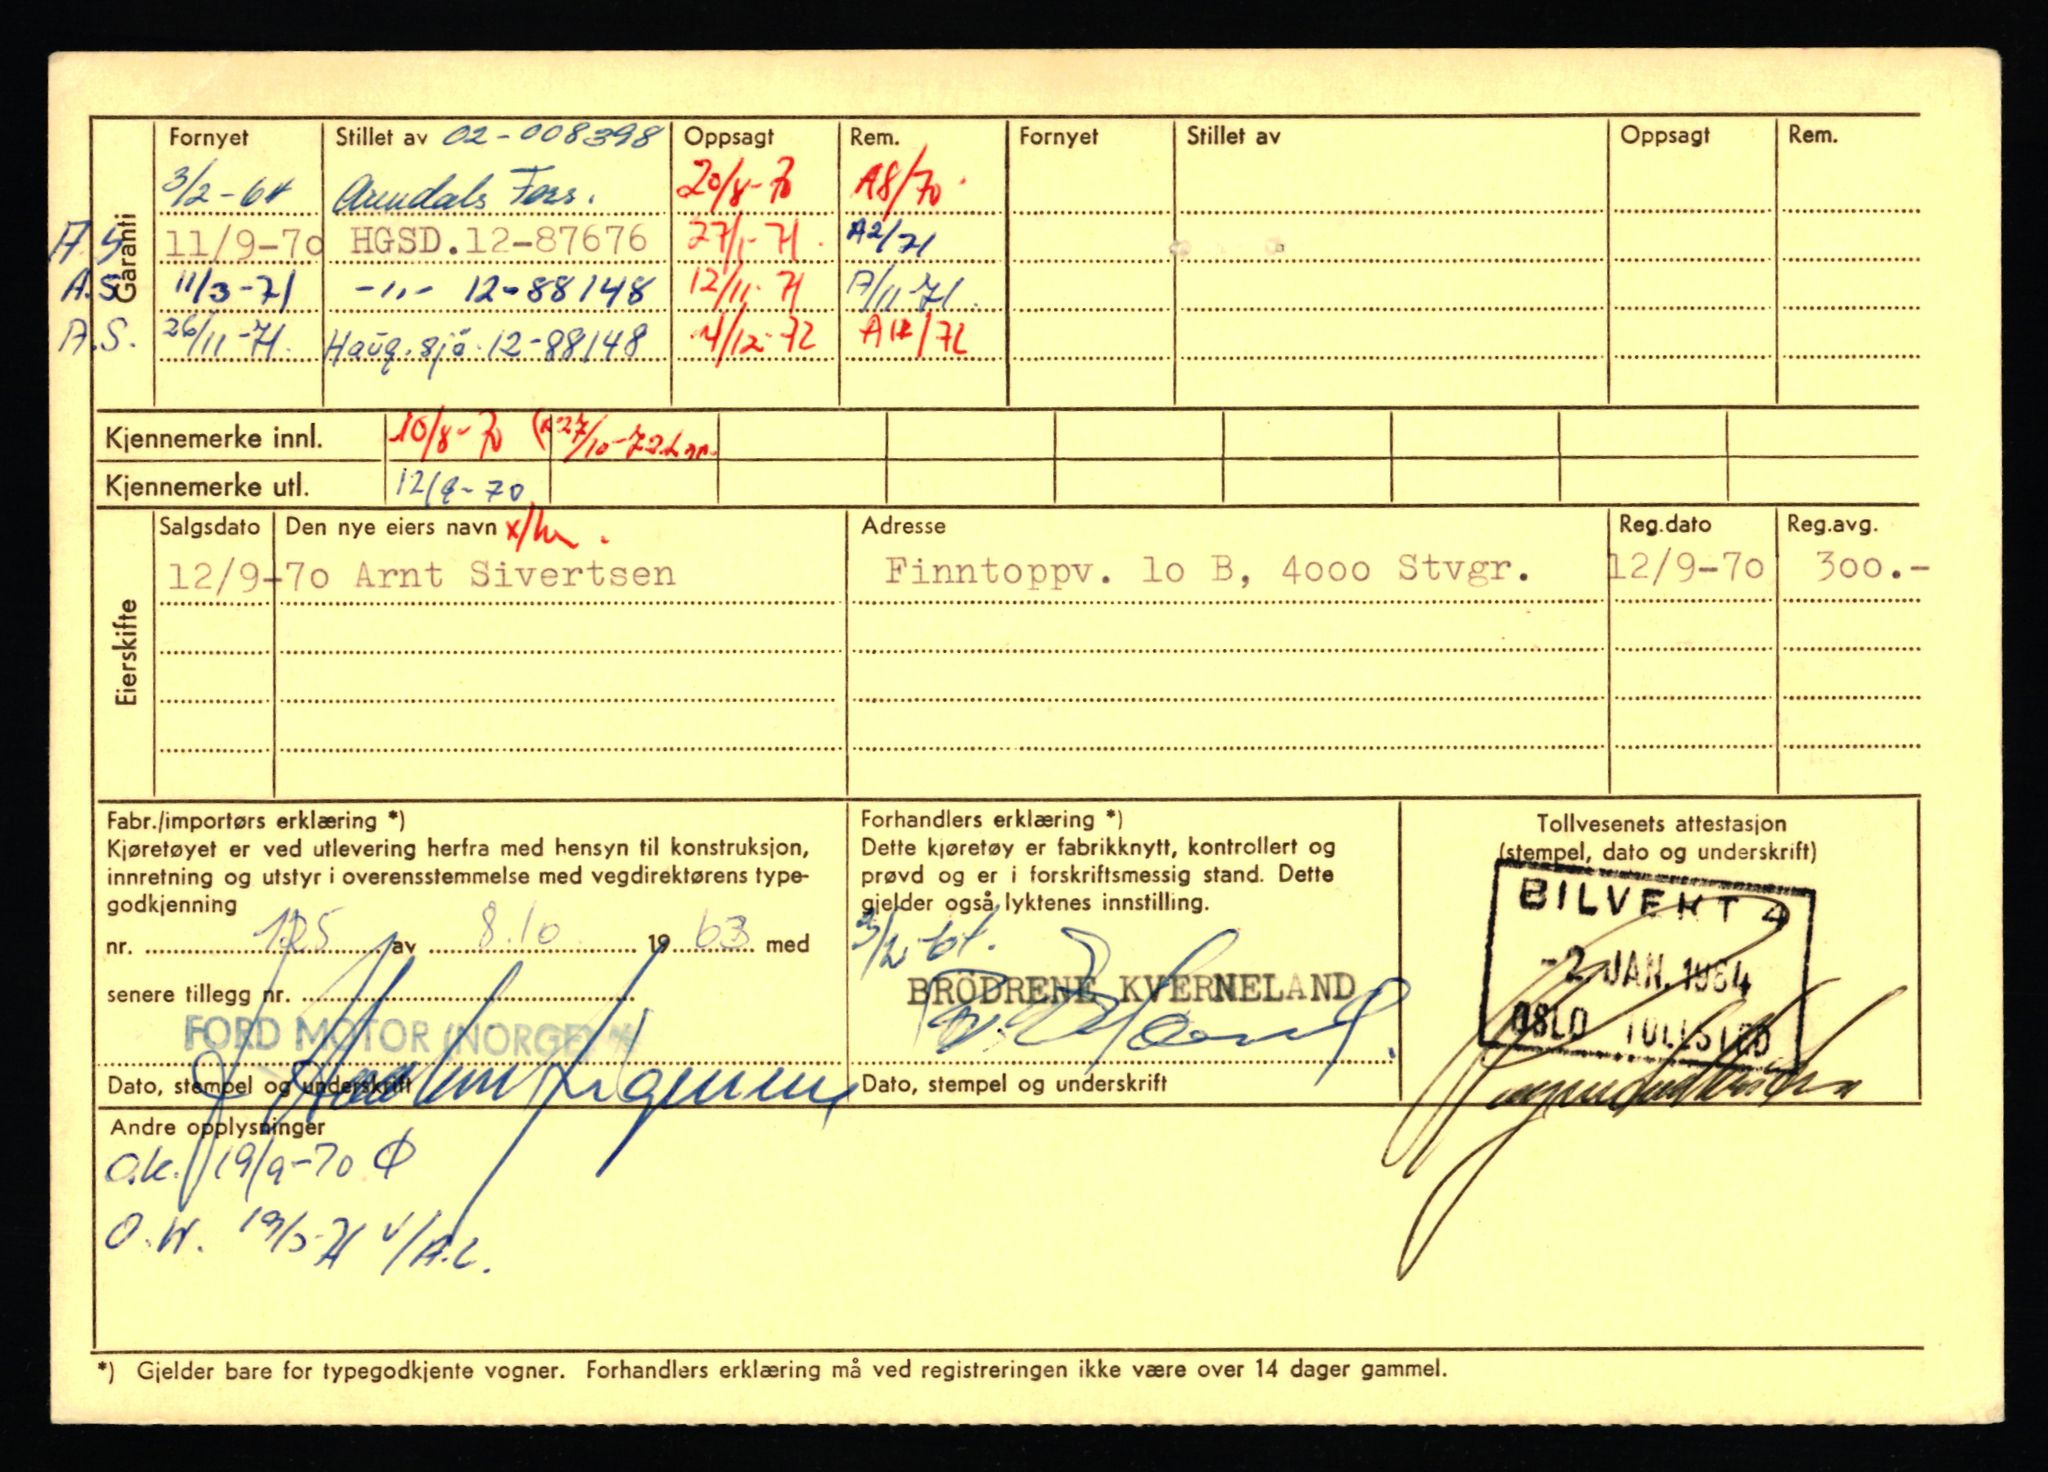 Fornyet Stillet av 02-008398 Oppsagt Rem. Fornyet Stillet av Oppsagt Rem.
3/2-64 Arendals Fors. 20/8-70 A8/70.
A.S 11/9-70 HGSD.12-87676 27/1-71. A2/71
A.S 11/3-71 -"- 12-88148 12/11-71 A/11-71.
A.S. 26/11-71. Haug.sjø.12-88148 /12-72 /72
Garanti
Kjennemerke innl. 10/8-70 27/10-72
Kjennemerke utl. 12/9-70
Salgsdato Den nye eiers navn Adresse Reg.dato Reg.avg.
12/9-70 Arnt Sivertsen Finntoppv. 10 B, 4000 Stvgr. 12/9-70 300.-
Eierskifte
Fabr./importørs erklæring *)
Kjøretøyet er ved utlevering herfra med hensyn til konstruksjon,
innretning og utstyr i overensstemmelse med vegdirektørens type-
godkjenning
nr. 125 av 8.10 1963 med
senere tillegg nr.
FORD MOTOR (NORGE) A/S
Dato, stempel og underskrift
Forhandlers erklæring *)
Dette kjøretøy er fabrikknytt, kontrollert og
prøvd og er i forskriftsmessig stand. Dette
gjelder også lyktenes innstilling.
3/2-64.
BRÖDRENE KVERNELAND
Dato, stempel og underskrift
Tollvesenets attestasjon
(stempel, dato og underskrift)
BILVEKT 4
-2 JAN. 1964
OSLO TOLLSTED
Andre opplysninger
O.K. 19/9-70 Φ
O.W. 19/3-71 v/A.L.
*) Gjelder bare for typegodkjente vogner. Forhandlers erklæring må ved registreringen ikke være over 14 dager gammel.